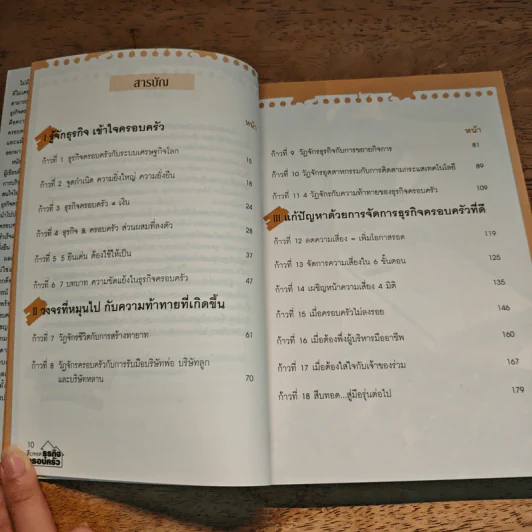 สารบัญ
หน้า
I รู้จักธุรกิจ เข้าใจครอบครัว
ก้าวที่ 1 ธุรกิจครอบครัวกับระบบเศรษฐกิจโลก 16
ก้าวที่ 2 จุดกำเนิด ความยิ่งใหญ่ ความยั่งยืน 18
ก้าวที่ 3 ธุรกิจครอบครัว ≠ เงิน 24
ก้าวที่ 4 ธุรกิจ & ครอบครัว ส่วนผสมที่ลงตัว 28
ก้าวที่ 5 5 ยีนเด่น ต้องใช้ให้เป็น 37
ก้าวที่ 6 7 บทบาท ความขัดแย้งในธุรกิจครอบครัว 47
II วงจรที่หมุนไป กับความท้าทายที่เกิดขึ้น
ก้าวที่ 7 วัฏจักรชีวิตกับการสร้างทายาท 61
ก้าวที่ 8 วัฏจักรครอบครัวกับการรับมือบริษัทพ่อ บริษัทลูก
และบริษัทหลาน 70
10
สืบทอด ธุรกิจ
ครอบครัว
หน้า
ก้าวที่ 9 วัฏจักรธุรกิจกับการขยายกิจการ 81
ก้าวที่ 10 วัฏจักรอุตสาหกรรมกับการคิดตามกระแสเทคโนโลยี 89
ก้าวที่ 11 4 วัฏจักรกับความท้าทายของธุรกิจครอบครัว 109
III แก้ปัญหาด้วยการจัดการธุรกิจครอบครัวที่ดี
ก้าวที่ 12 ลดความเสี่ยง = เพิ่มโอกาสรอด 119
ก้าวที่ 13 จัดการความเสี่ยงใน 6 ขั้นตอน 125
ก้าวที่ 14 เผชิญหน้าความเสี่ยง 4 มิติ 135
ก้าวที่ 15 เมื่อครอบครัวไม่ลงรอย 145
ก้าวที่ 16 เมื่อต้องพึ่งผู้บริหารมืออาชีพ 160
ก้าวที่ 17 เมื่อต้องใส่ใจกับเจ้าของร่วม 167
ก้าวที่ 18 สืบทอด...สู่มือรุ่นต่อไป 179